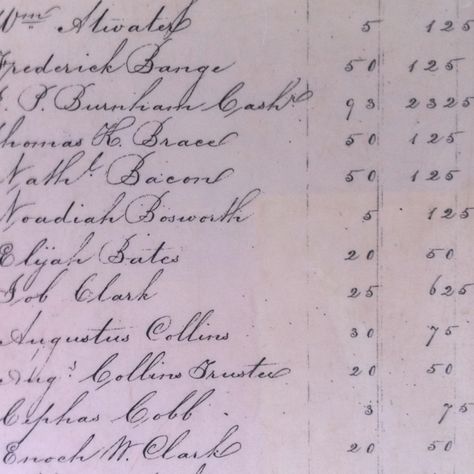 Wm Atwater 5 125
Frederick Bange 50 125
P. Burnham Cashr 93 2325
Thomas K. Brace 50 125
Nathl. Bacon 50 125
Noadiah Bosworth 5 125
Elijah Bates 20 50
Job Clark 25 625
Augustus Collins 30 75
Augs Collins Trustee 20 50
Cephas Cobb 3 75
Enoch W. Clark 20 50